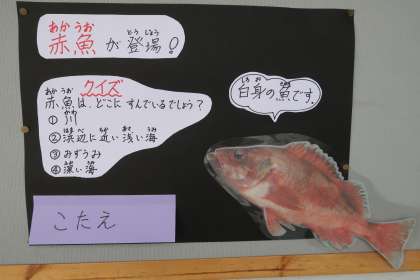 赤魚が登場!
あかうお とうじょう
クイズ
赤魚は、どこにすんでいるでしょう?
あかうお
① 川
かわ
② 浜辺に近い浅い海
はまべ ちか あさ うみ
③ みずうみ
④ 深い海
ふか うみ
こたえ
白身の魚です。
しろみ さかな